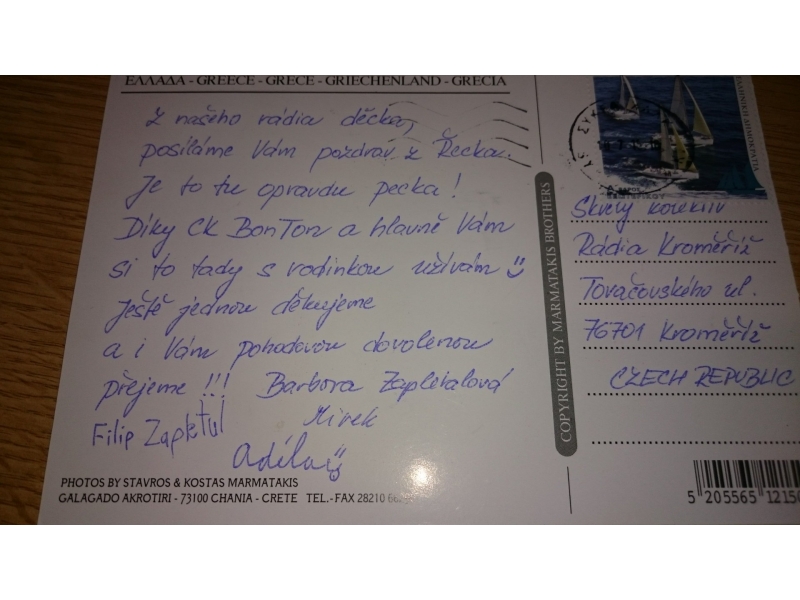 ΕΛΛΑΔΑ - GREECE - GRECE - GRIECHENLAND - GRECIA
Z našeho rádia děcka,
posíláme Vám pozdrav z Řecka.
Je to tu opravdu pecka!
Díky CK BonTon a hlavně Vám
si to tady s rodinkou užívám
Ještě jednou děkujeme
a i Vám pohodovou dovolenou
přejeme !!! Barbora Zapletalová
Filip Zapletal
Mirek
Adéla
PHOTOS BY STAVROS & KOSTAS MARMATAKIS
GALAGADO AKROTIRI - 73100 CHANIA - CRETE TEL.-FAX 28210
COPYRIGHT BY MARMATAKIS BROTHERS
ΕΛΛΗΝΙΚΗ ΔΗΜΟΚΡΑΤΙΑ
Skvělý kolektiv
Rádia Kroměříž
Tovačovského ul.
76701 Kroměříž
CZECH REPUBLIC
5 205565 12150